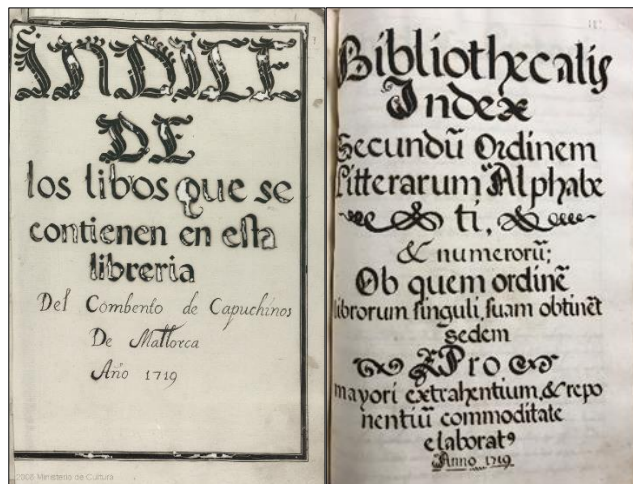 INDICE
DE
los libos que se
contienen en esta
libreria
Del Combento de Capuchinos
De Mallorca
Año 1719
2008 Ministerio de Cultura
Bibliothecalis
Index
Secundũ Ordinem
Litterarum Alphabe
ti,
& numerorũ;
Ob quem ordinẽ
librorum singuli, suam obtinẽt
sedem
Pro
mayori extrahentium, & repo
nentiũ commoditate
elaboratꝰ
Anno 1719